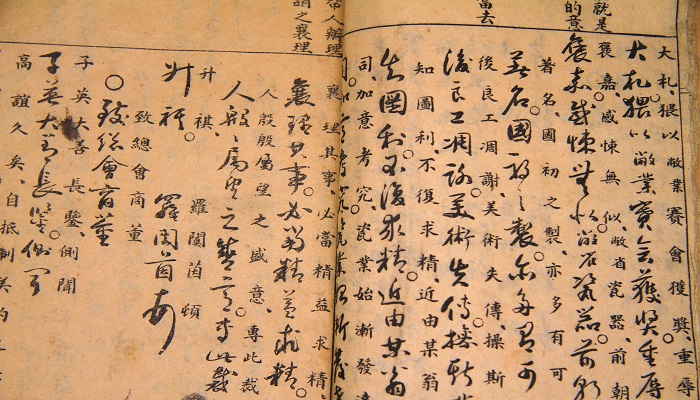 就是
的意
當去
大札猥以敝業賽會獲獎、重辱
大札猥以敝業賽會獲獎重辱
褒嘉、感悚無似、敝省瓷器、前朝
褒嘉感悚無似敝省瓷器前朝
著名、國初之製、亦多有可
著名國初之製亦多有可
後良工凋謝、美術失傳、操斯
後良工凋謝美術失傳操斯
知圖利、不復求精、近由某翁
知圖利不復求精近由某翁
司、加意考究、瓷業始漸發達
人辦理
謂之襄理
襄理其事、必當精益求精
襄理其事必當精益求精
人殷殷屬望之盛意、專此裁
人殷殷屬望之盛意專此裁
升祺、 羅閎茵頓
升祺 羅閎茵頓
致總會商董
致總會商董
子英大善長鑒側聞
子英大善長鑒側聞
高誼久矣、自抵制美約